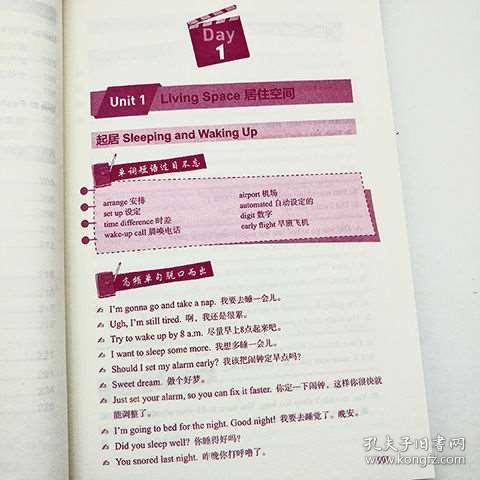 Day
1
Unit 1 Living Space 居住空间
起居 Sleeping and Waking Up
单词短语过目不忘
arrange 安排
set up 设定
time difference 时差
wake-up call 睡唤电话
airport 机场
automated 自动设定的
digit 数字
early flight 早班飞机
高频单句脱口而出
I'm gonna go and take a nap. 我要去睡一会儿。
Ugh, I'm still tired. 啊，我还是很累。
Try to wake up by 8 a.m. 尽量早上8点起来吧。
I want to sleep some more. 我想多睡一会儿。
Should I set my alarm early? 我该把闹钟定早点吗？
Sweet dream. 做个好梦。
Just set your alarm, so you can fix it faster. 你定一下闹钟，这样你很快就
能调整了。
I'm going to bed for the night. Good night! 我要去睡觉了。晚安。
Did you sleep well? 你睡得好吗？
You snored last night. 昨晚你打呼噜了。
001
孔夫子旧书网
www.kongfz.com